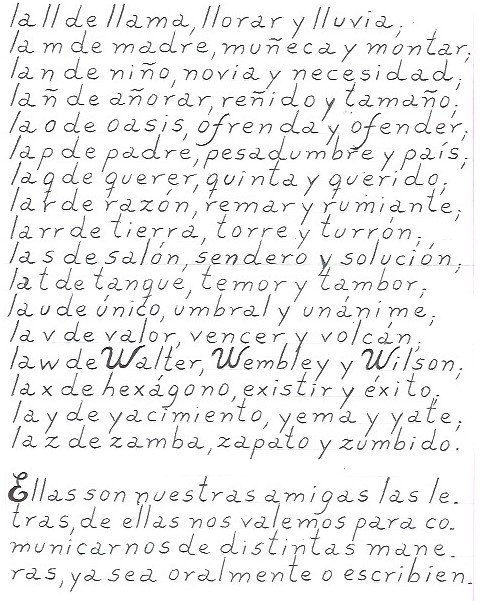 la ll de llama, llorar y lluvia;
la m de madre, muñeca y montar;
la n de niño, novia y necesidad;
la ñ de añorar, reñido y tamaño;
la o de oasis, ofrenda y ofender;
la p de padre, pesadumbre y país;
la q de querer, quinta y querido;
la r de razón, remar y rumiante;
la rr de tierra, torre y turrón;
la s de salón, sendero y solución;
la t de tanque, temor y tambor;
la u de único, umbral y unánime;
la v de valor, vencer y volcán;
la w de Walter, Wembley y Wilson;
la x de hexágono, existir y éxito;
la y de yacimiento, yema y yate;
la z de zamba, zapato y zumbido.
Ellas son nuestras amigas las le-
tras, de ellas nos valemos para co-
municarnos de distintas mane-
ras, ya sea oralmente o escribien-